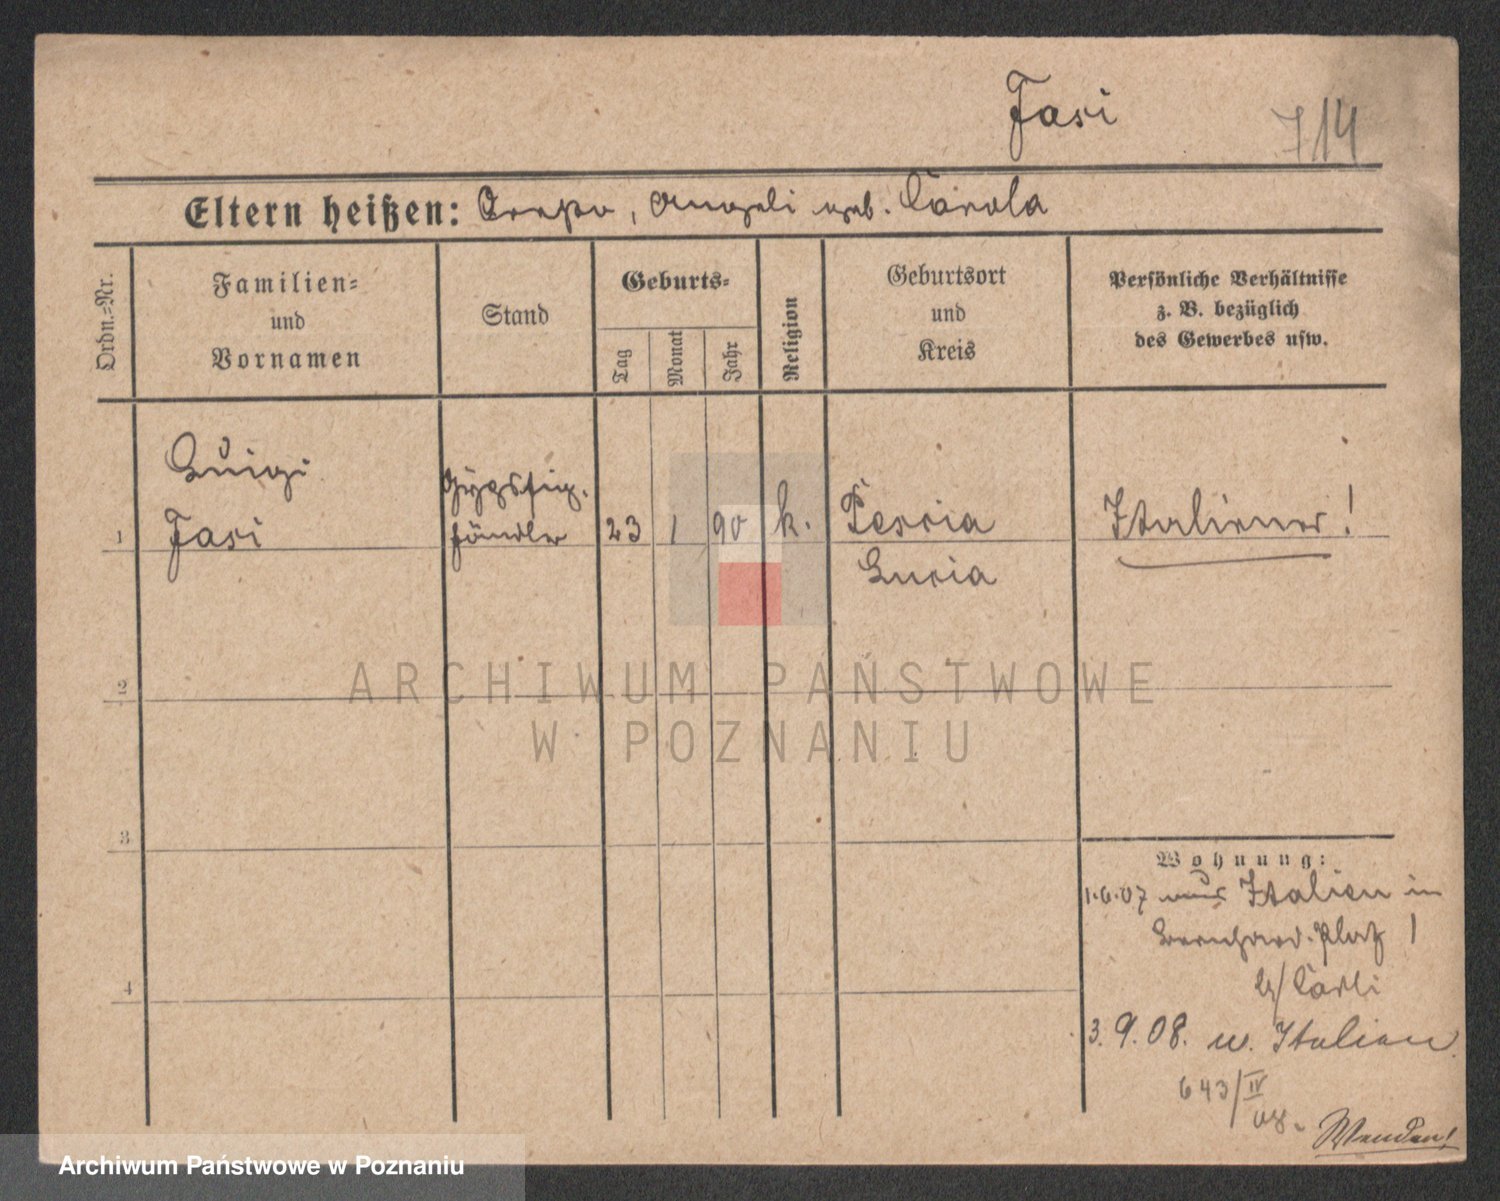 Fasi
714
Eltern heißen: Beppo, Angeli geb. Carola
Ordn.=Nr.
Familien=
und
Vornamen
Stand
Geburts=
Tag
Monat
Jahr
Religion
Geburtsort
und
Kreis
Persönliche Verhältnisse
z. B. bezüglich
des Gewerbes usw.
Luigi
Fasi
Gypsfig.
händler
1
23
1
90
k.
Pescia
Lucca
Italiener!
2
ARCHIWUM PAŃSTWOWE
W POZNANIU
3
4
Wohnung:
1.6.07 aus Italien in
Bernhard. Platz 1
b/ Carli
3.9.08. n. Italien.
643/IV
08.
Wenden!
Archiwum Państwowe w Poznaniu